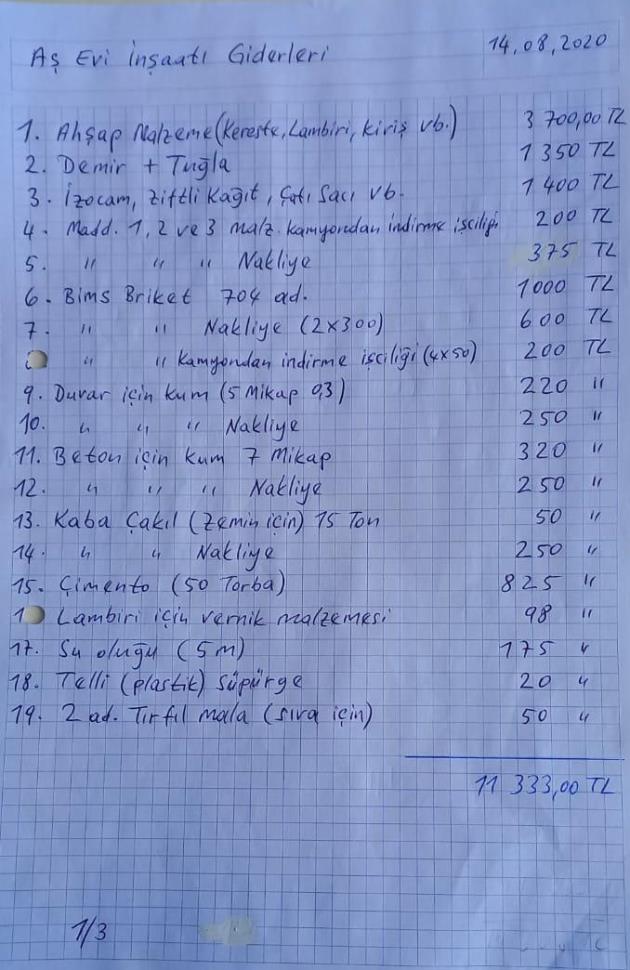 Aş Evi İnşaatı Giderleri 14,08,2020
1. Ahşap Malzeme (Kereste, Lambiri, kiriş vb.) 3 700,00 TL
2. Demir + Tuğla 1 350 TL
3. İzocam, Ziftli Kağıt, Çatı Sacı vb. 1 400 TL
4. Madd. 1, 2 ve 3 malz. kamyondan indirme işçiliği 200 TL
5. " " " Nakliye 375 TL
6. Bims Briket 704 ad. 1000 TL
7. " " Nakliye (2x300) 600 TL
" " Kamyondan indirme işçiliği (4x50) 200 TL
9. Duvar için kum (5 Mikap 0,3) 220 "
10. " " " Nakliye 250 "
11. Beton için kum 7 Mikap 320 "
12. " " " Nakliye 250 "
13. Kaba Çakıl (Zemin için) 15 Ton 50 "
14. " " Nakliye 250 "
15. Çimento (50 Torba) 825 "
1 Lambiri için vernik malzemesi 98 "
17. Su oluğu (5m) 175 "
18. Telli (plastik) süpürge 20 "
19. 2 ad. Tırfıl mala (sıva için) 50 "
11 333,00 TL
1/3